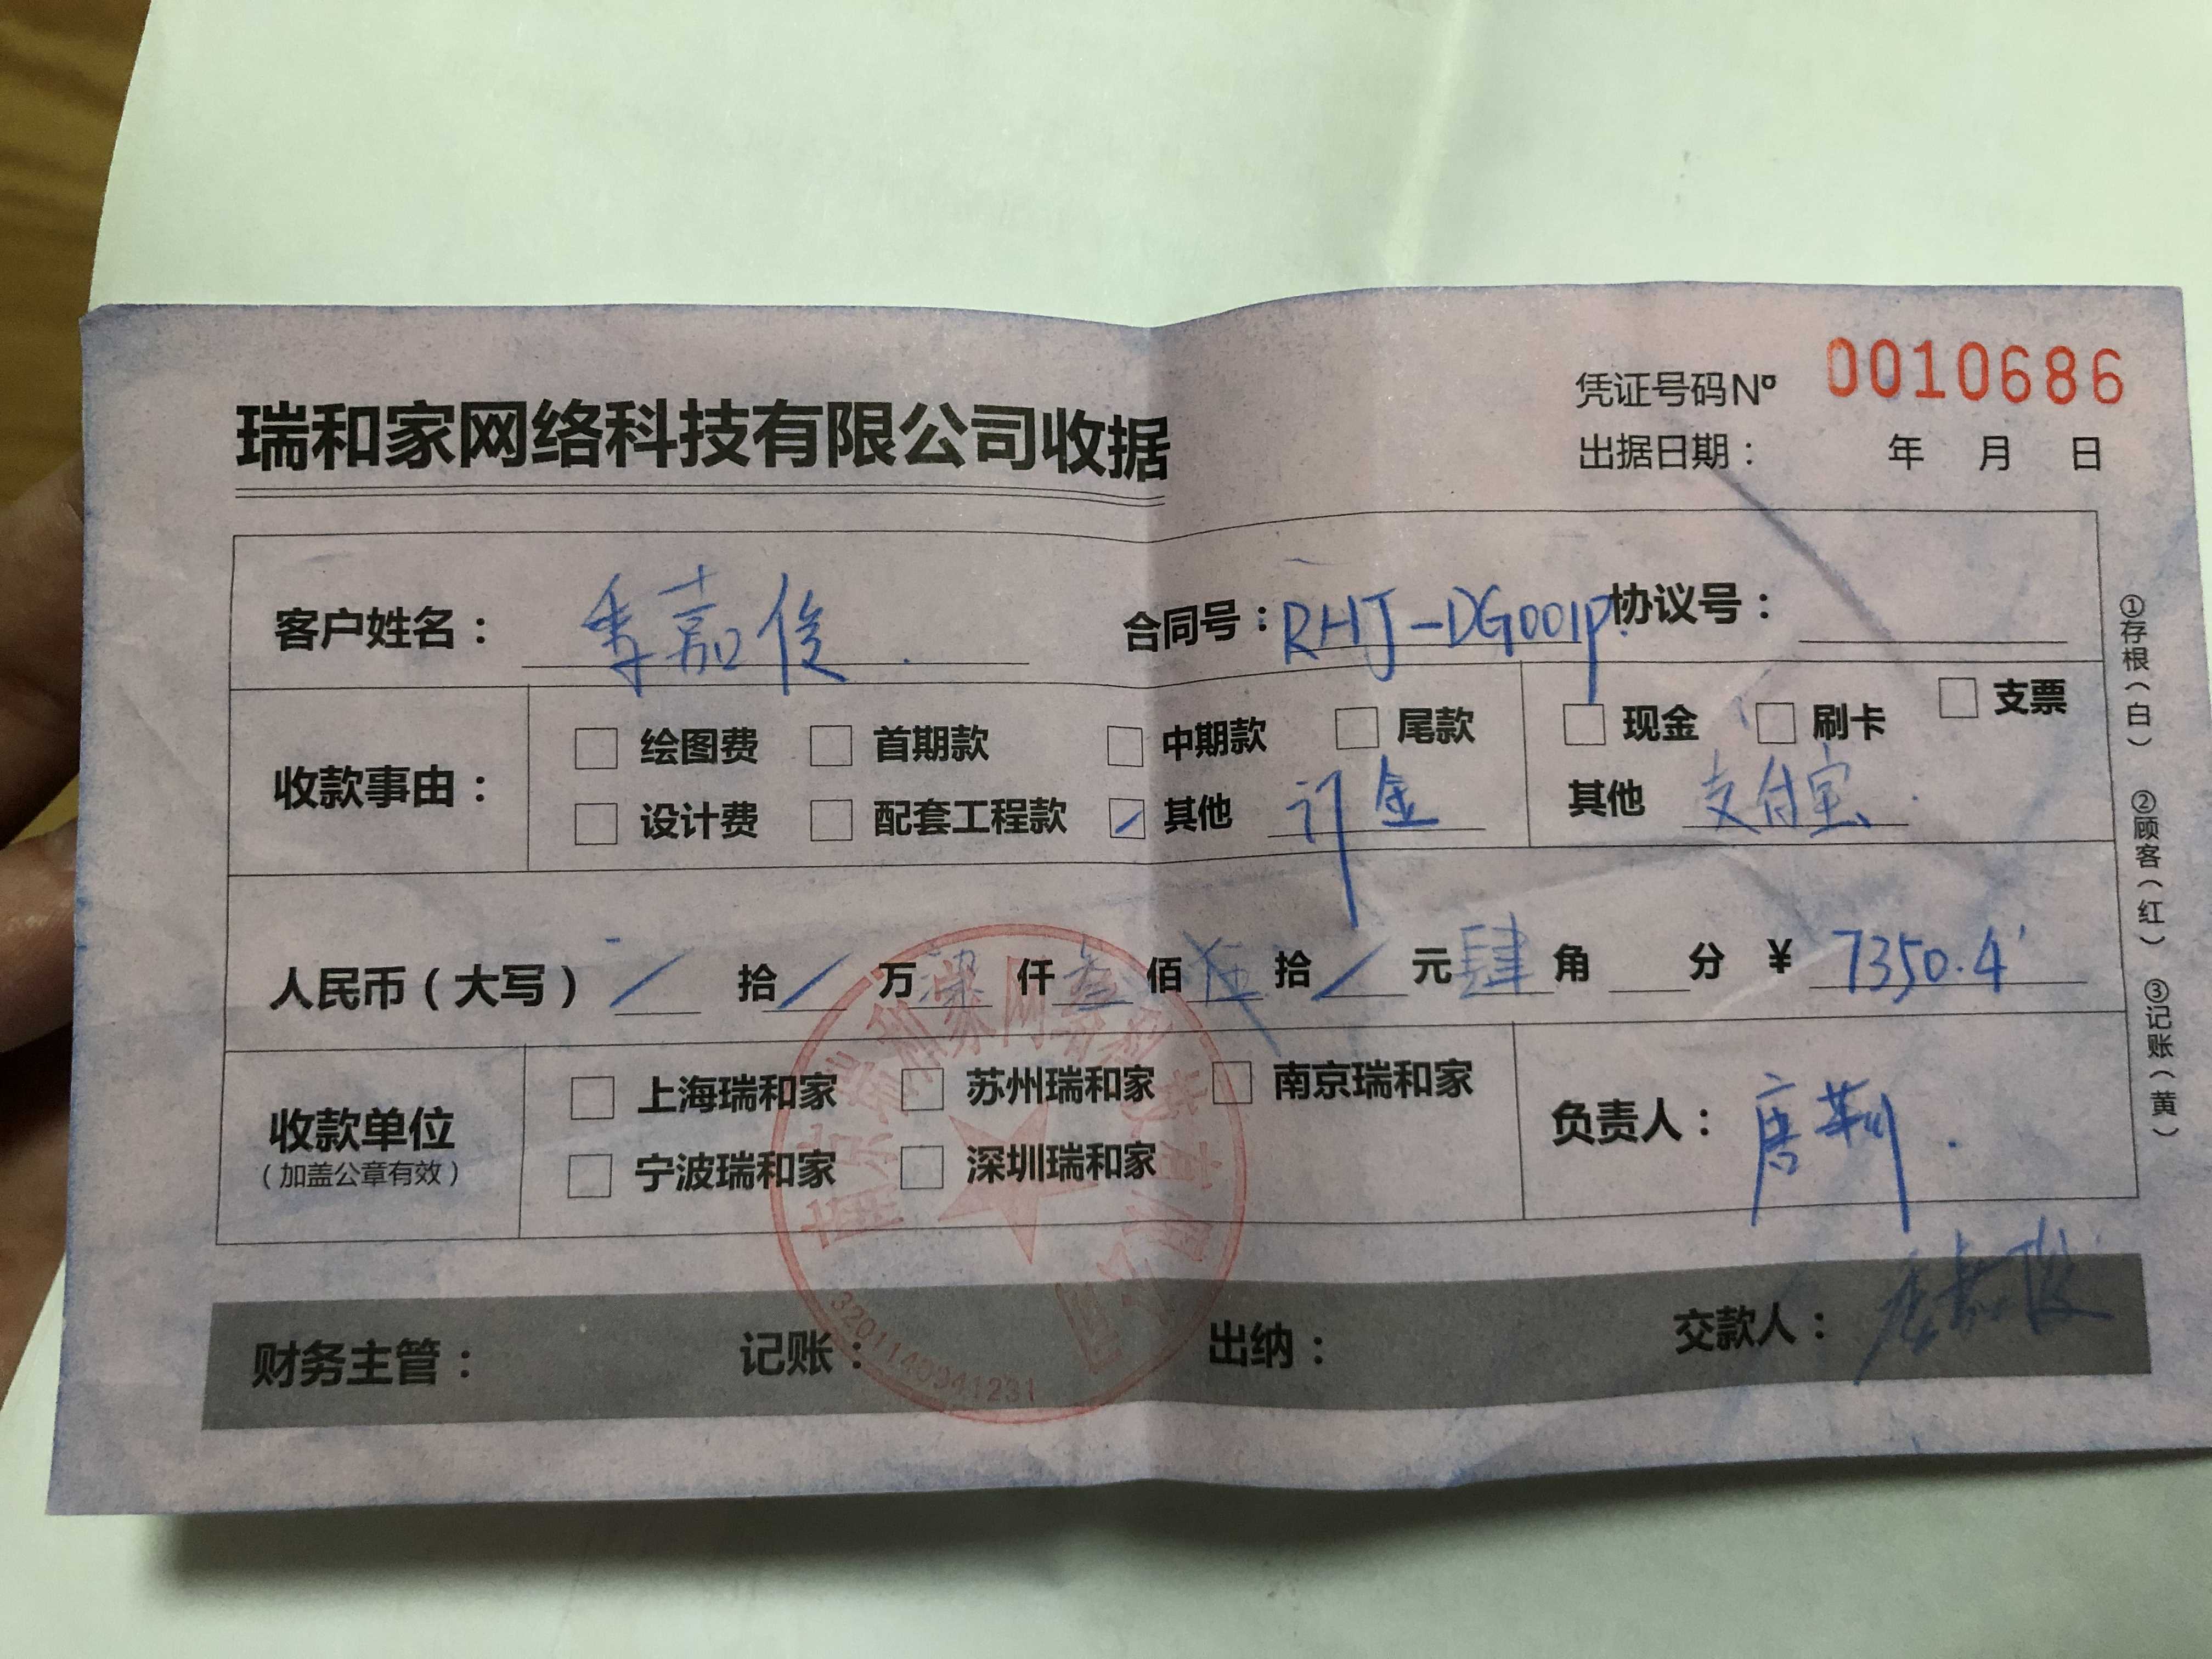 瑞和家网络科技有限公司收据
凭证号码Nº 0010686
出据日期： 年 月 日
客户姓名：季嘉俊 合同号：RHJ-DG001P 协议号：
收款事由： □ 绘图费 □ 首期款 □ 中期款 □ 尾款 □ 现金 □ 刷卡 □ 支票
□ 设计费 □ 配套工程款 ☑ 其他 订金 其他 支付宝
人民币（大写） / 拾 / 万 柒 仟 叁 佰 伍 拾 / 元 肆 角 分 ¥ 7350.4
收款单位 □ 上海瑞和家 □ 苏州瑞和家 □ 南京瑞和家 负责人：唐
（加盖公章有效） □ 宁波瑞和家 □ 深圳瑞和家
财务主管： 记账： 出纳： 交款人：
①存根（白） ②顾客（红） ③记账（黄）
南京瑞和家网络科技有限公司
3201140941231